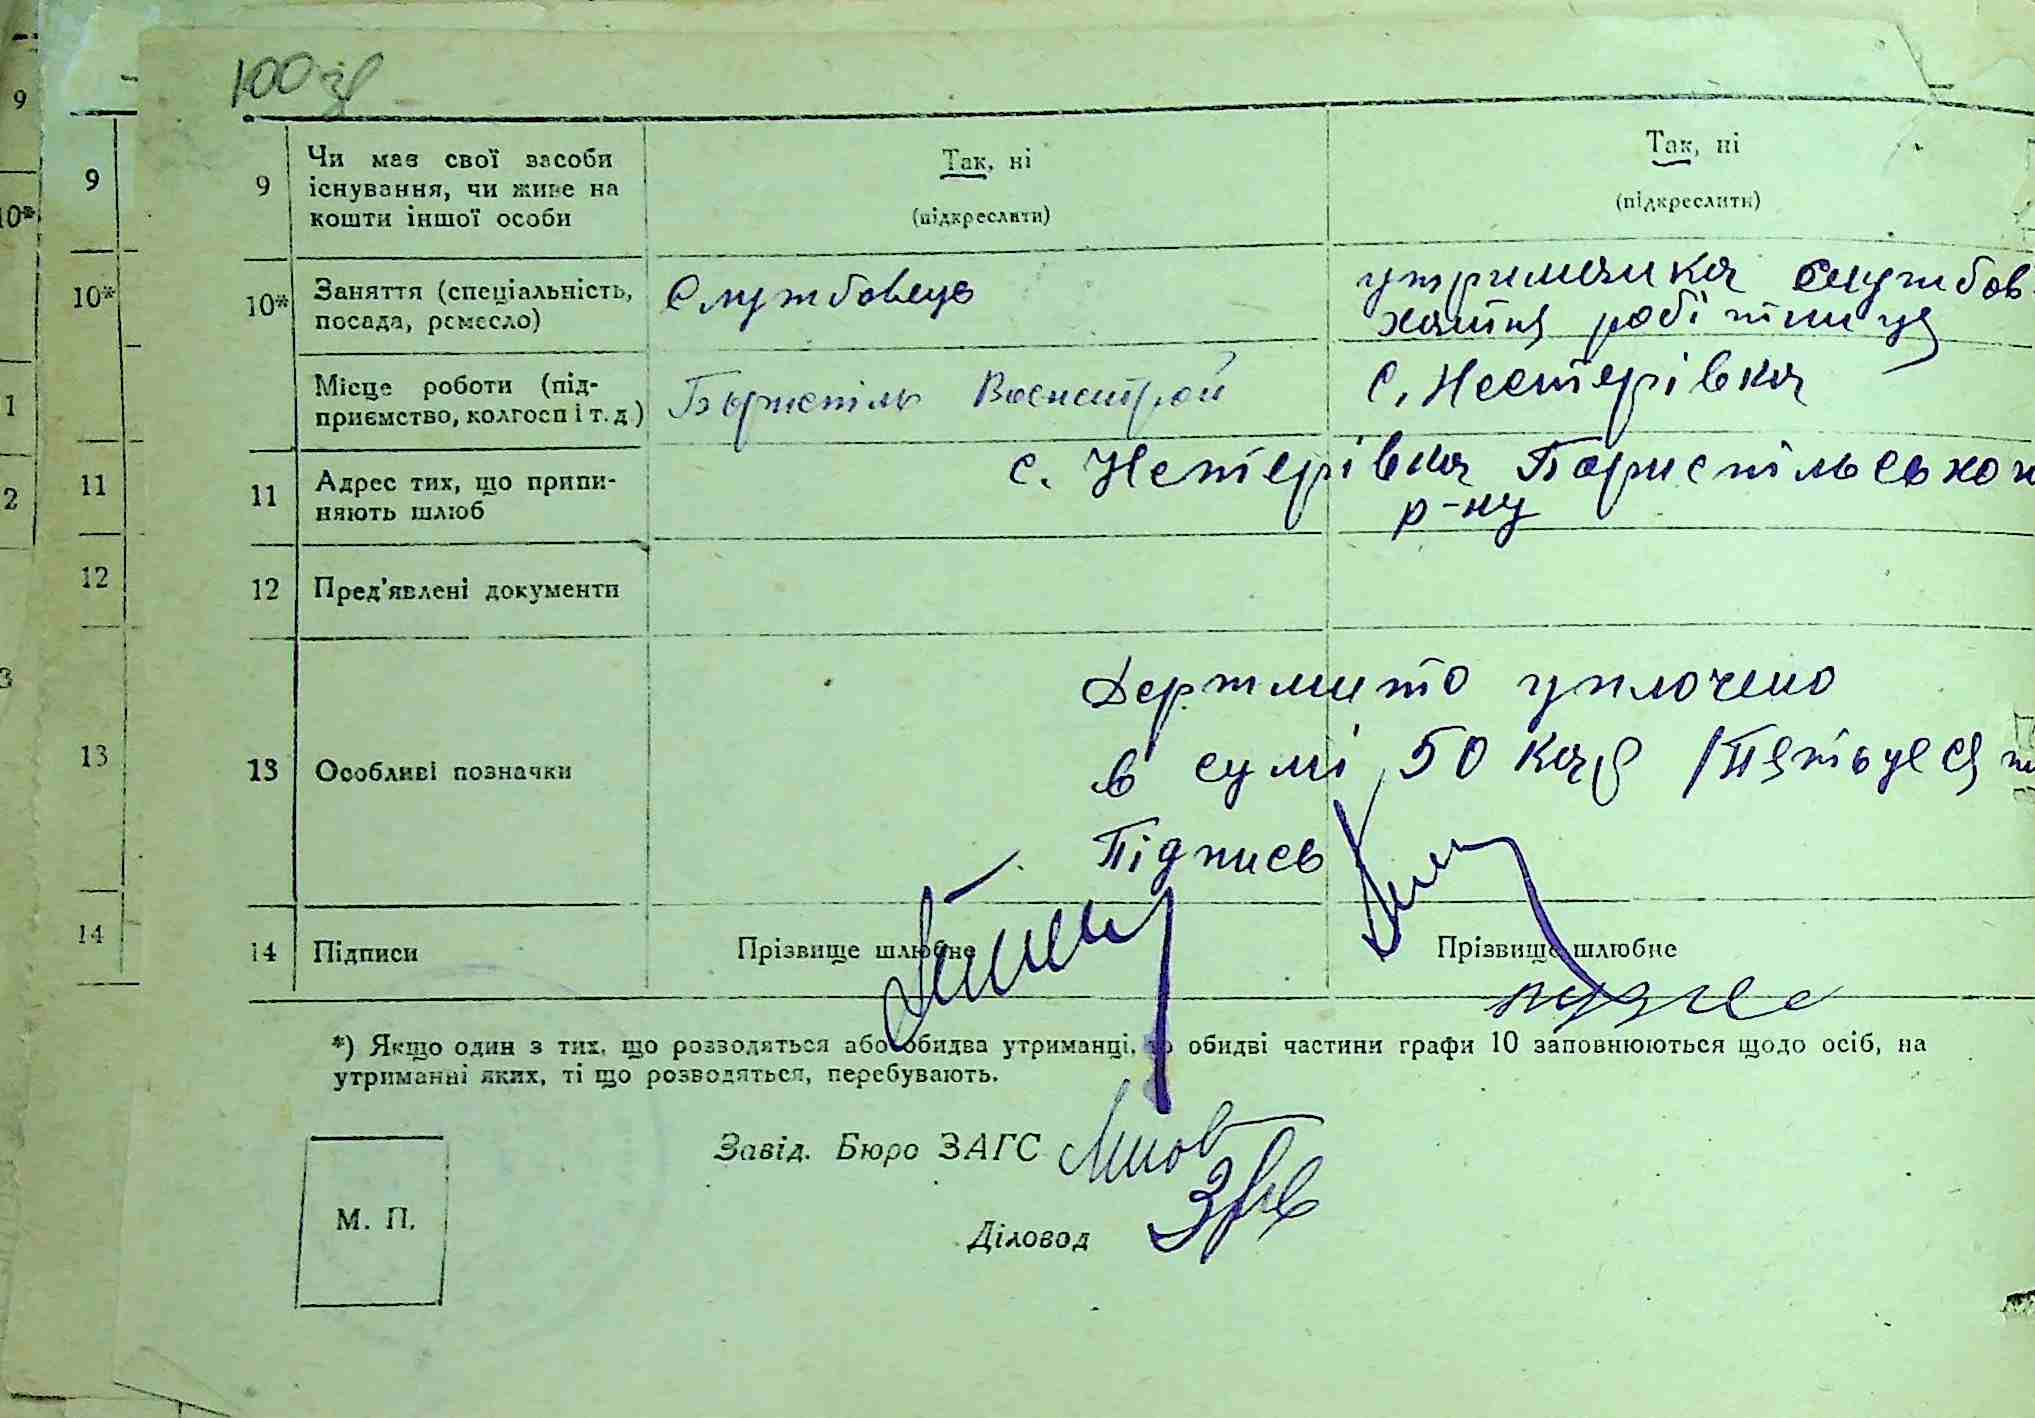 100 зв
9 Чи має свої засоби існування, чи живе на кошти іншої особи
Так, ні
(підкреслити)
Так, ні
(підкреслити)
10* Заняття (спеціальність, посада, ремесло)
Службовець
утриманка службов.
хатня робітниця
Місце роботи (підприємство, колгосп і т. д.)
Бориспіль Военстрой
с. Нестерівка
11 Адрес тих, що припиняють шлюб
с. Нетерівка Бориспільського
р-ну
12 Пред'явлені документи
13 Особливі позначки
Держмито уплочено
в сумі 50 карб /Пятьдеся
Підпись
14 Підписи
Прізвище шлюбне
Прізвище шлюбне
*) Якщо один з тих, що розводяться або обидва утриманці, то обидві частини графи 10 заповнюються щодо осіб, на
утриманні яких, ті що розводяться, перебувають.
Завід. Бюро ЗАГС
М. П.
Діловод
9
10*
11
12
13
14
9
10*
1
2
3